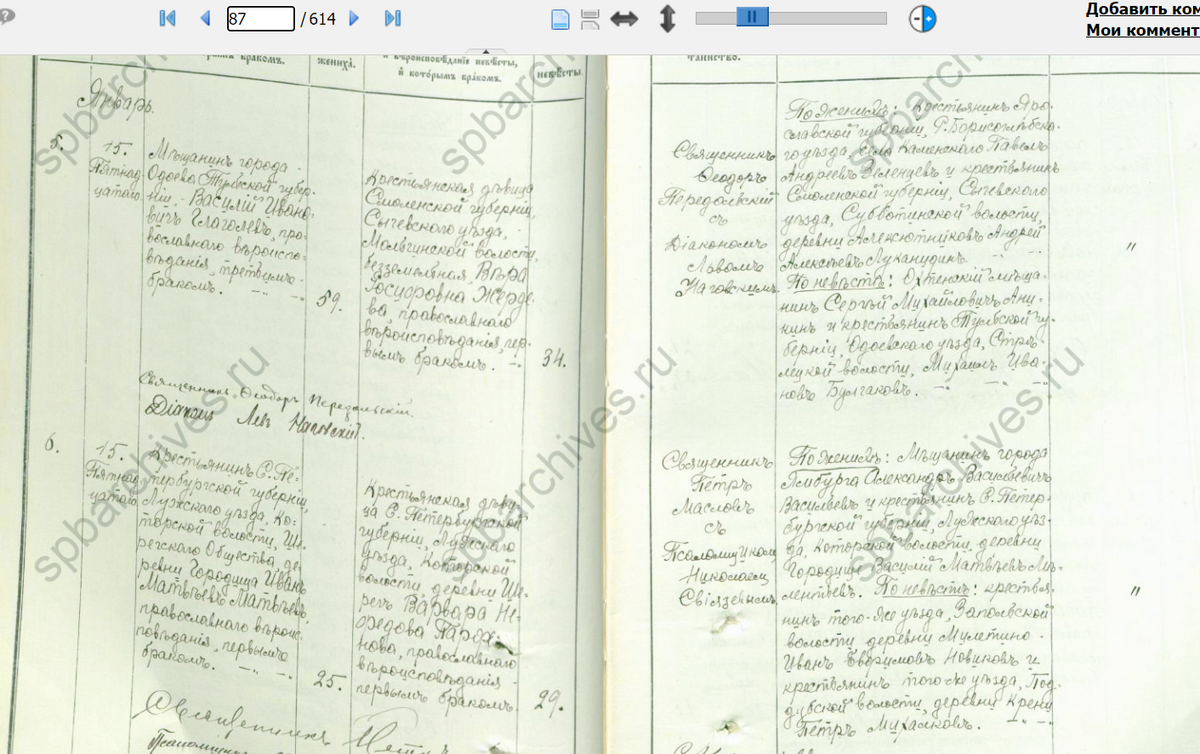 87 / 614
Добавить ком
Мои коммент
рымъ бракомъ.
жениха.
и вѣроисповѣданіе невѣсты,
и которымъ бракомъ.
невѣсты.
таинство.
Январь.
5.
15.
Пятнад
цатаго.
Мѣщанинъ города
Одоева Тульской губер-
ніи Василій Ивано-
вичъ Глаголевъ, пра-
вославнаго вѣроиспо-
вѣданія, третьимъ
бракомъ.
59.
Крестьянская дѣвица
Смоленской губерніи,
Сычевского уѣзда,
волости,
безземельная, Вѣра
православнаго
вѣроисповѣданія, пер-
вымъ бракомъ.
34.
Священникъ
Ѳеодоръ
Передольскій
съ
Діакономъ
Львомъ
Наговскимъ
По женихѣ: Крестьянинъ Яро-
славской губерніи, Р. Борисоглѣбска-
го уѣзда, села Каменскаго Павелъ
Андреевъ Зеленцевъ и крестьянинъ
Смоленской губерніи, Сычевского
уѣзда, Субботинской волости,
деревни Андрей
Алексѣевъ
По невѣстѣ: Охтенскій мѣща-
нинъ Сергѣй Михайловичъ Ану-
инъ и крестьянинъ Тульской гу-
берніи, Одоевского уѣзда, Стрѣ-
лецкой волости, Михаилъ Ива-
новъ Булгаковъ.
"
Священникъ Ѳеодоръ Передольскій.
Діаконъ Левъ Наговскій.
6.
15.
Пятнад
цатаго
Крестьянинъ С. Пе-
тербургской губерніи,
Лужского уѣзда, Ко-
торской волости, Ши-
регского Общества де-
ревни Городища Иванъ
Матвѣевъ Матвѣевъ,
православнаго вѣроис-
повѣданія, первымъ
бракомъ.
25.
Крестьянская дѣви-
ца С. Петербургской
губерніи, Лужского
уѣзда, Которской
волости деревни Ши-
регъ Варвара Не-
федова Парфе-
нова, православнаго
вѣроисповѣданія
первымъ бракомъ.
29.
Священникъ
Петръ
Масловъ
съ
Псаломщикомъ
Николаемъ
Свіязевымъ
По женихѣ: Мѣщанинъ города
Ямбурга Александръ Васильевичъ
Васильевъ и крестьянинъ С. Петер-
бургской губерніи, Лужского уѣз-
да, Которской волости, деревни
Городища Василій Матвѣевъ Ме-
лентьевъ. По невѣстѣ: крестья-
нинъ того же уѣзда, Заполѣвской
волости деревни Мулетино
Иванъ Евфимовъ Новиковъ и
крестьянинъ того же уѣзда, Под-
дубской волости, деревни Крени
Петръ Михайловъ.
"
Священникъ Петръ
spbarchives.ru
spbarchives.ru
spbarchives.ru
spbarchives.ru
spbarchives.ru
spbarchives.ru